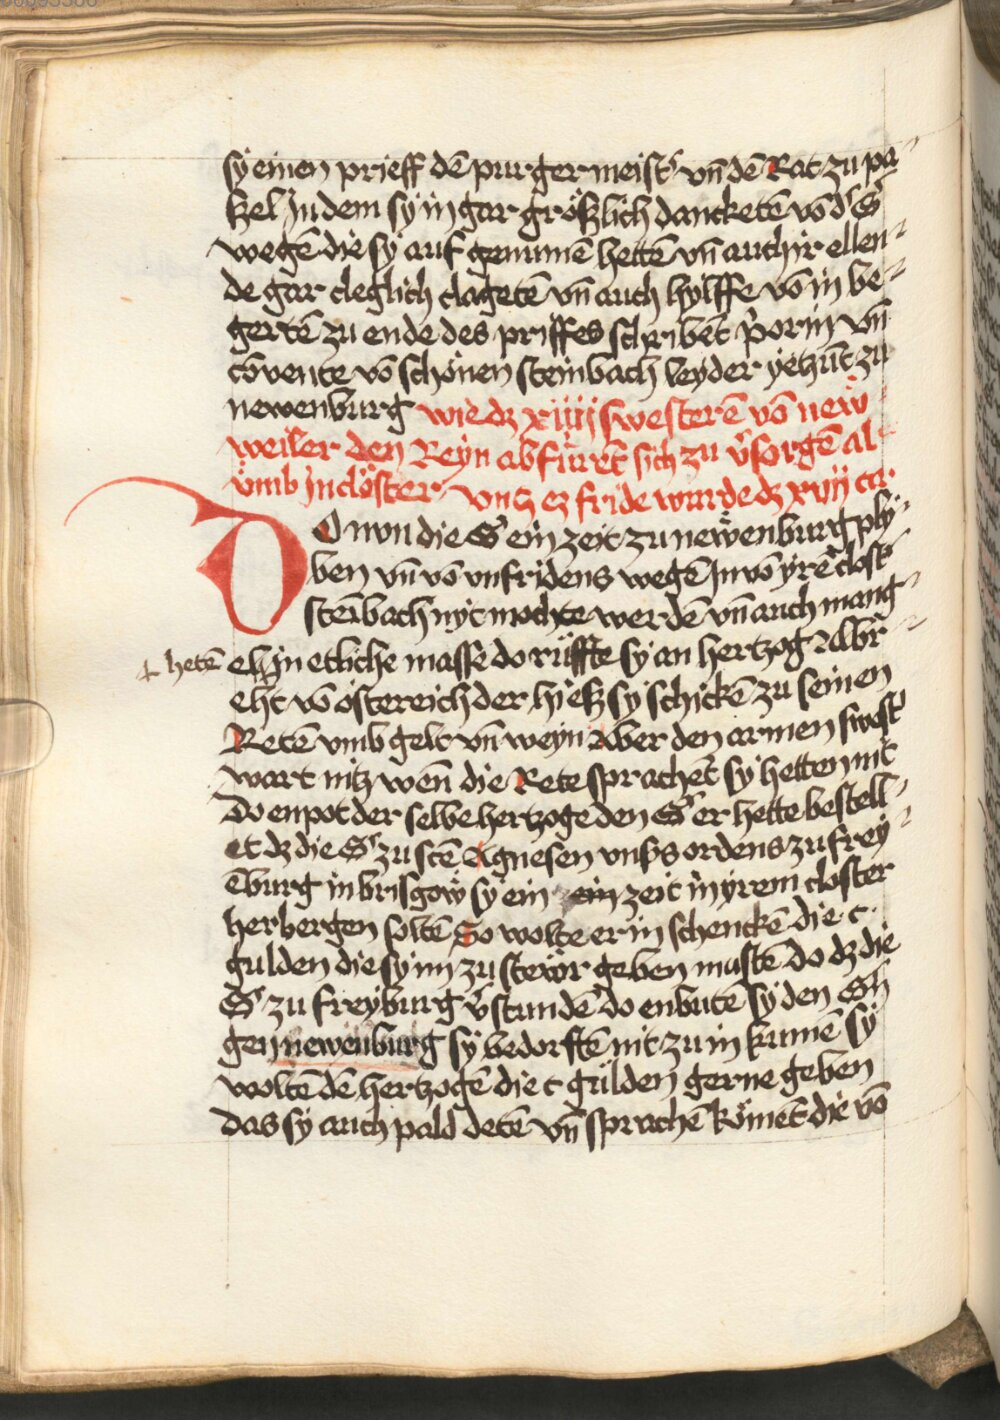 sÿ einen prieff dē purgermeistʼ vn̄ dē Rat zu pa
ßel Jn dem sÿ in gar größlich dancketē vō dʼ Sʼ
wegē die sÿ auf genumē hettē vn̄ auch ir ellen⸗
de gar cleglich clagetē vn̄ auch hylffe vō in be⸗
gertē zu ende des priffes schribēt pʼorin vn̄
cōvente vō schönen steinbach leyder yetzūt zu
newenburg wie dz xiiij swesterē vō new
weiler den Reÿn abfürēt sich zu vʼsorgē al⸗
ümb In clöster vntz ez fride wurde dz xviij ca
DO nvn die Sʼ ein zeit zu newenburg plÿ⸗
ben vn̄ vō vnfridens wegē In vō yrē clostʼ
steībach nÿt mochte werdē vn̄ auch mang⸗
+ hetē
el In etliche masse do rüffte sÿ an hertzog Albr⸗
eht vō östereich der hieß sÿ schickē zu seinen
Retē vmb gelt vn̄ weyn Aber den armen swestʼ
wart nitz wen̄ die Rete sprachēt sÿ hetten nit
do enpot der selbe hertzoge den Sʼ er hette bestell⸗
et dz die Sʼ zu sctē Agnesen vnsʼs ordens zu freÿ⸗
ēburg in brisgow sÿ ein zeit in ÿrem closter
herbergen soltē So wolte er in schenckē die c
gulden die sÿ im zu stewr geben mustē do dz die
Sʼ zu freÿburg vʼstundē do enbutē sÿ den Sʼ
gen newenburg sÿ bedorftē nit zu in kumē sÿ
woltē dē hertzogē die c gülden gerne geben
das sÿ auch pald detē vn̄ sprachē kömēt die vō